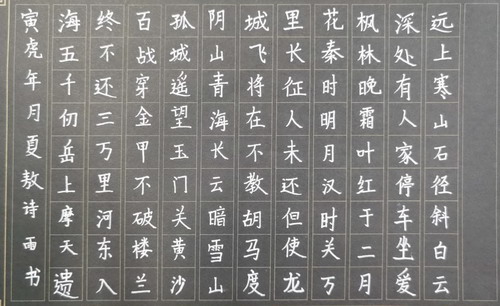 远上寒山石径斜白云
深处有人家停车坐爱
枫林晚霜叶红于二月
花秦时明月汉时关万
里长征人未还但使龙
城飞将在不教胡马度
阴山青海长云暗雪山
孤城遥望玉门关黄沙
百战穿金甲不破楼兰
终不还三万里河东入
海五千仞岳上摩天遗
寅虎年月夏敖诗雨书